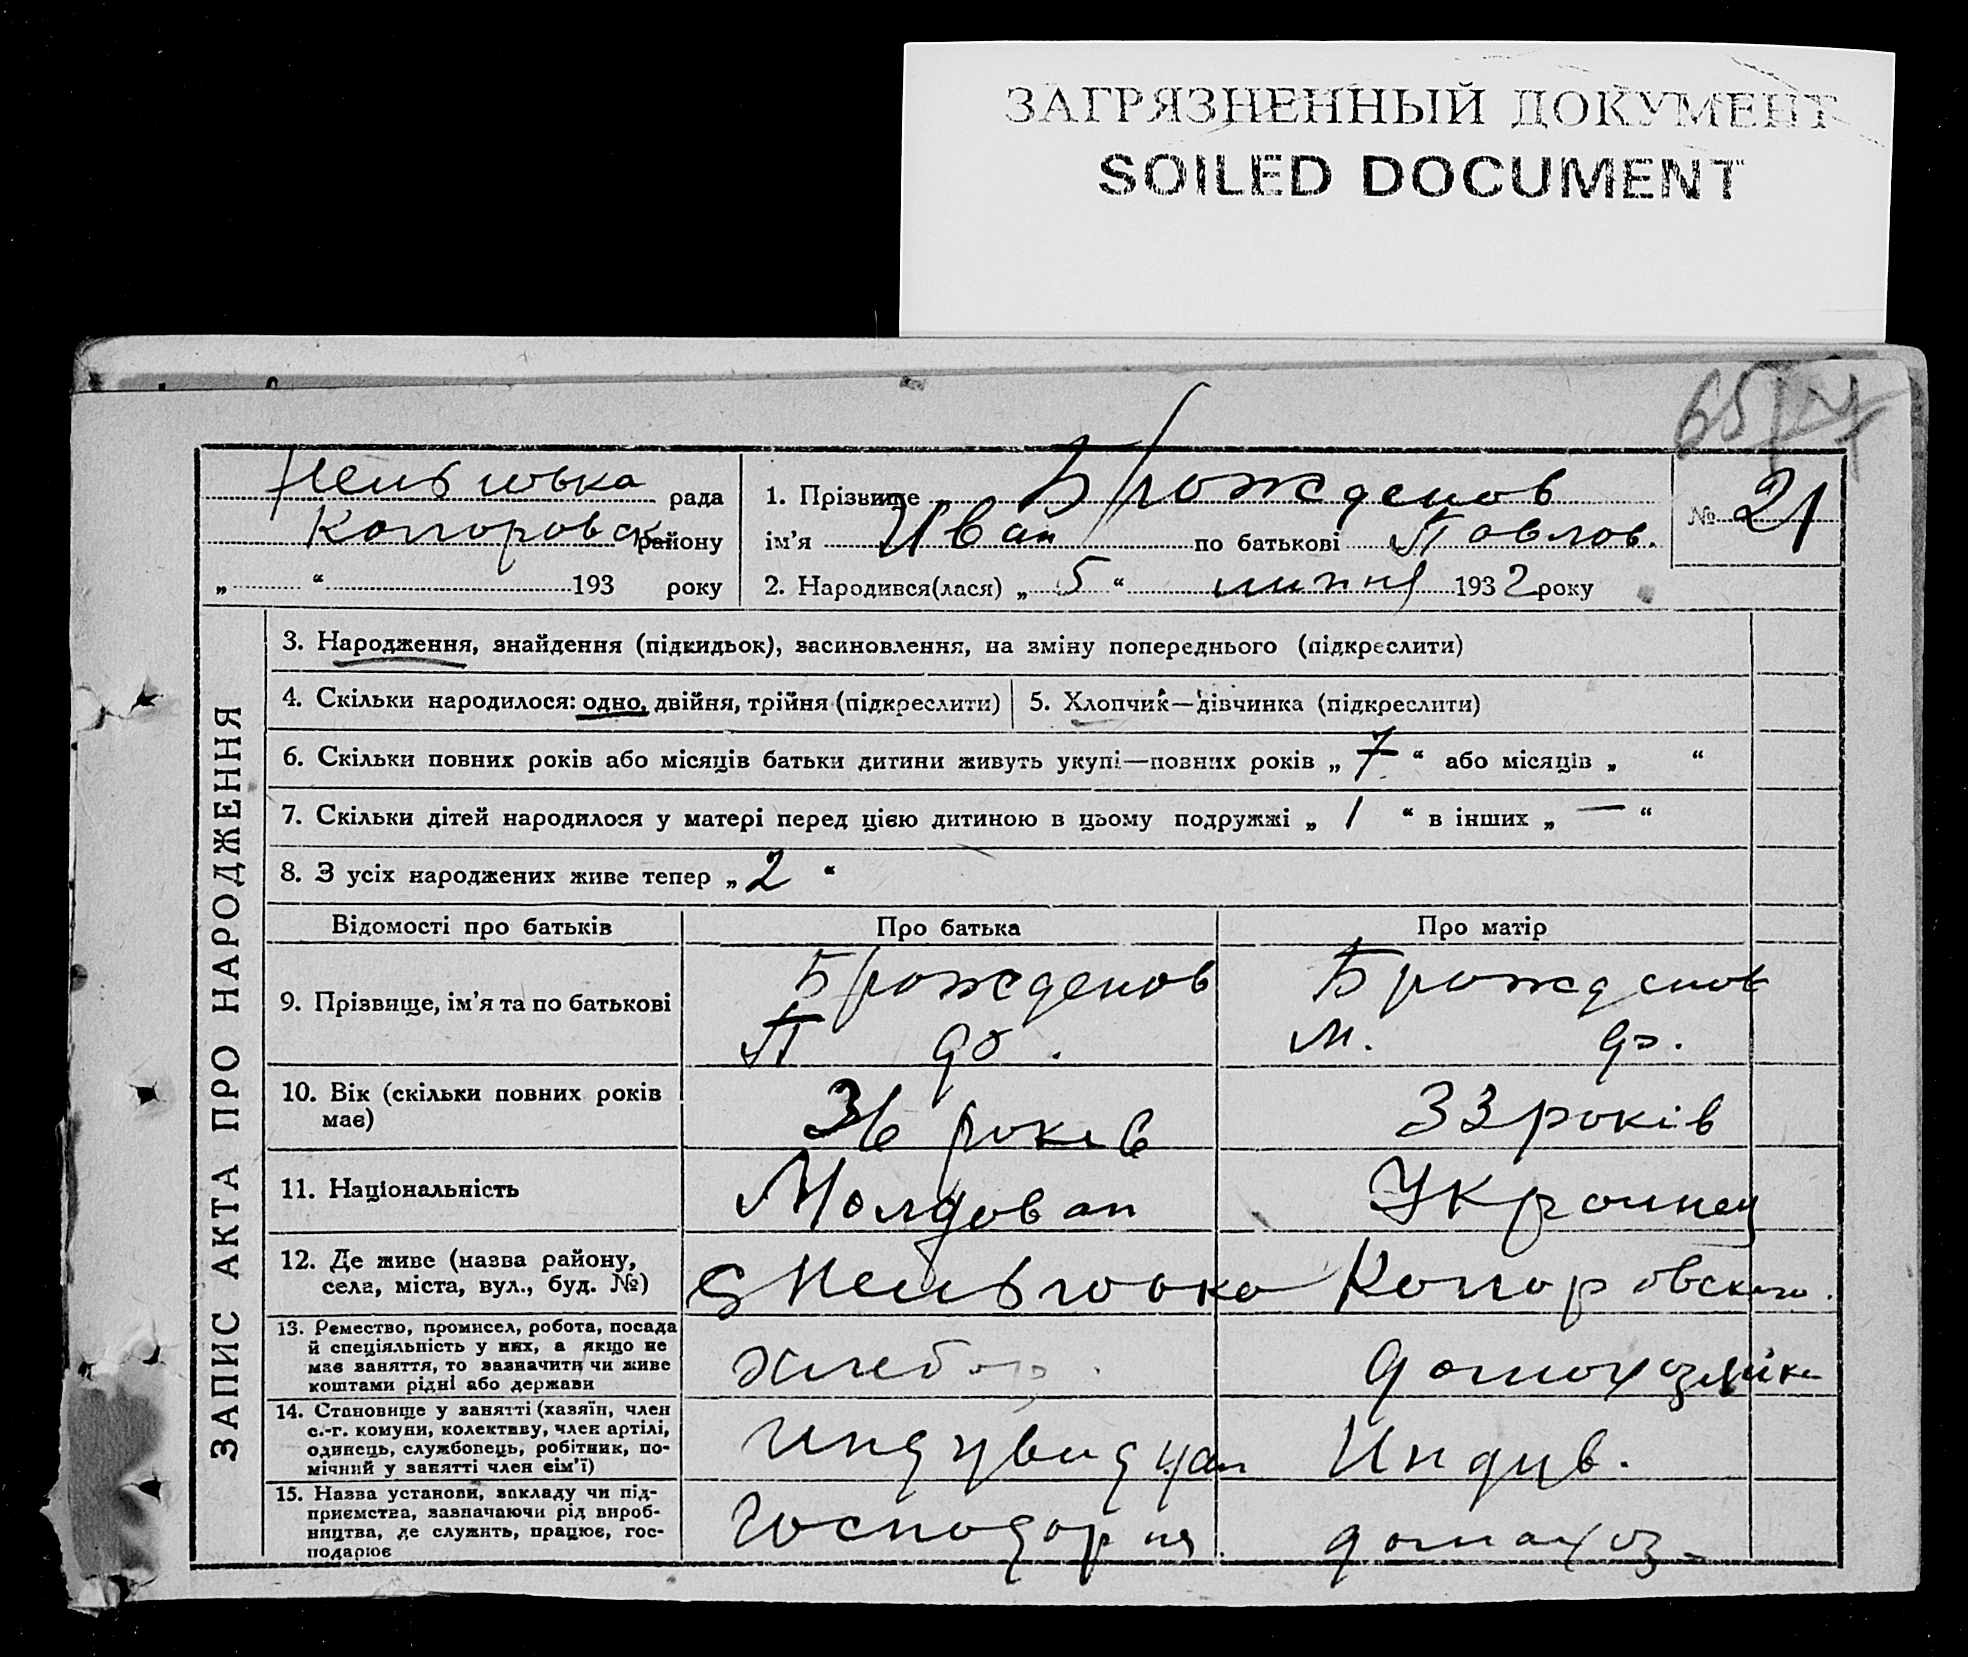 ЗАГРЯЗНЕННЫЙ ДОКУМЕНТ
SOILED DOCUMENT
рада
району
„ “ 193 року
1. Прізвище Брожденов
ім’я Иван по батькові Павлов.
2. Народився(лася) „ 5 “ липня 1932 року
№ 21
ЗАПИС АКТА ПРО НАРОДЖЕННЯ
3. Народження, знайдення (підкидьок), засиновлення, на зміну попереднього (підкреслити)
4. Скільки народилося: одно, двійня, трійня (підкреслити)
5. Хлопчик—дівчинка (підкреслити)
6. Скільки повних років або місяців батьки дитини живуть укупі—повних років „ 7 “ або місяців „ “
7. Скільки дітей народилося у матері перед цією дитиною в цьому подружжі „ 1 “ в інших „ — “
8. З усіх народжених живе тепер „ 2 “
Відомості про батьків
Про батька
Про матір
9. Прізвище, ім’я та по батькові
Брожденов
П до.
Брожденов
М. до.
10. Вік (скільки повних років
має)
36 років
33 років
11. Національність
Молдован
Украинец
12. Де живе (назва району,
села, міста, вул., буд. №)
13. Ремество, промисел, робота, посада
й спеціяльність у них, а якщо не
має заняття, то зазначити чи живе
коштами рідні або держави
хлебор.
домохозяйка
14. Становище у занятті (хазяїн, член
с.-г. комуни, колективу, член артілі,
одинець, службовець, робітник, по-
мічний у занятті член сім’ї)
Индив.
15. Назва установи, закладу чи під-
приємства, зазначаючи рід вироб-
ництва, де служить, працює, гос-
подарює
домахоз-